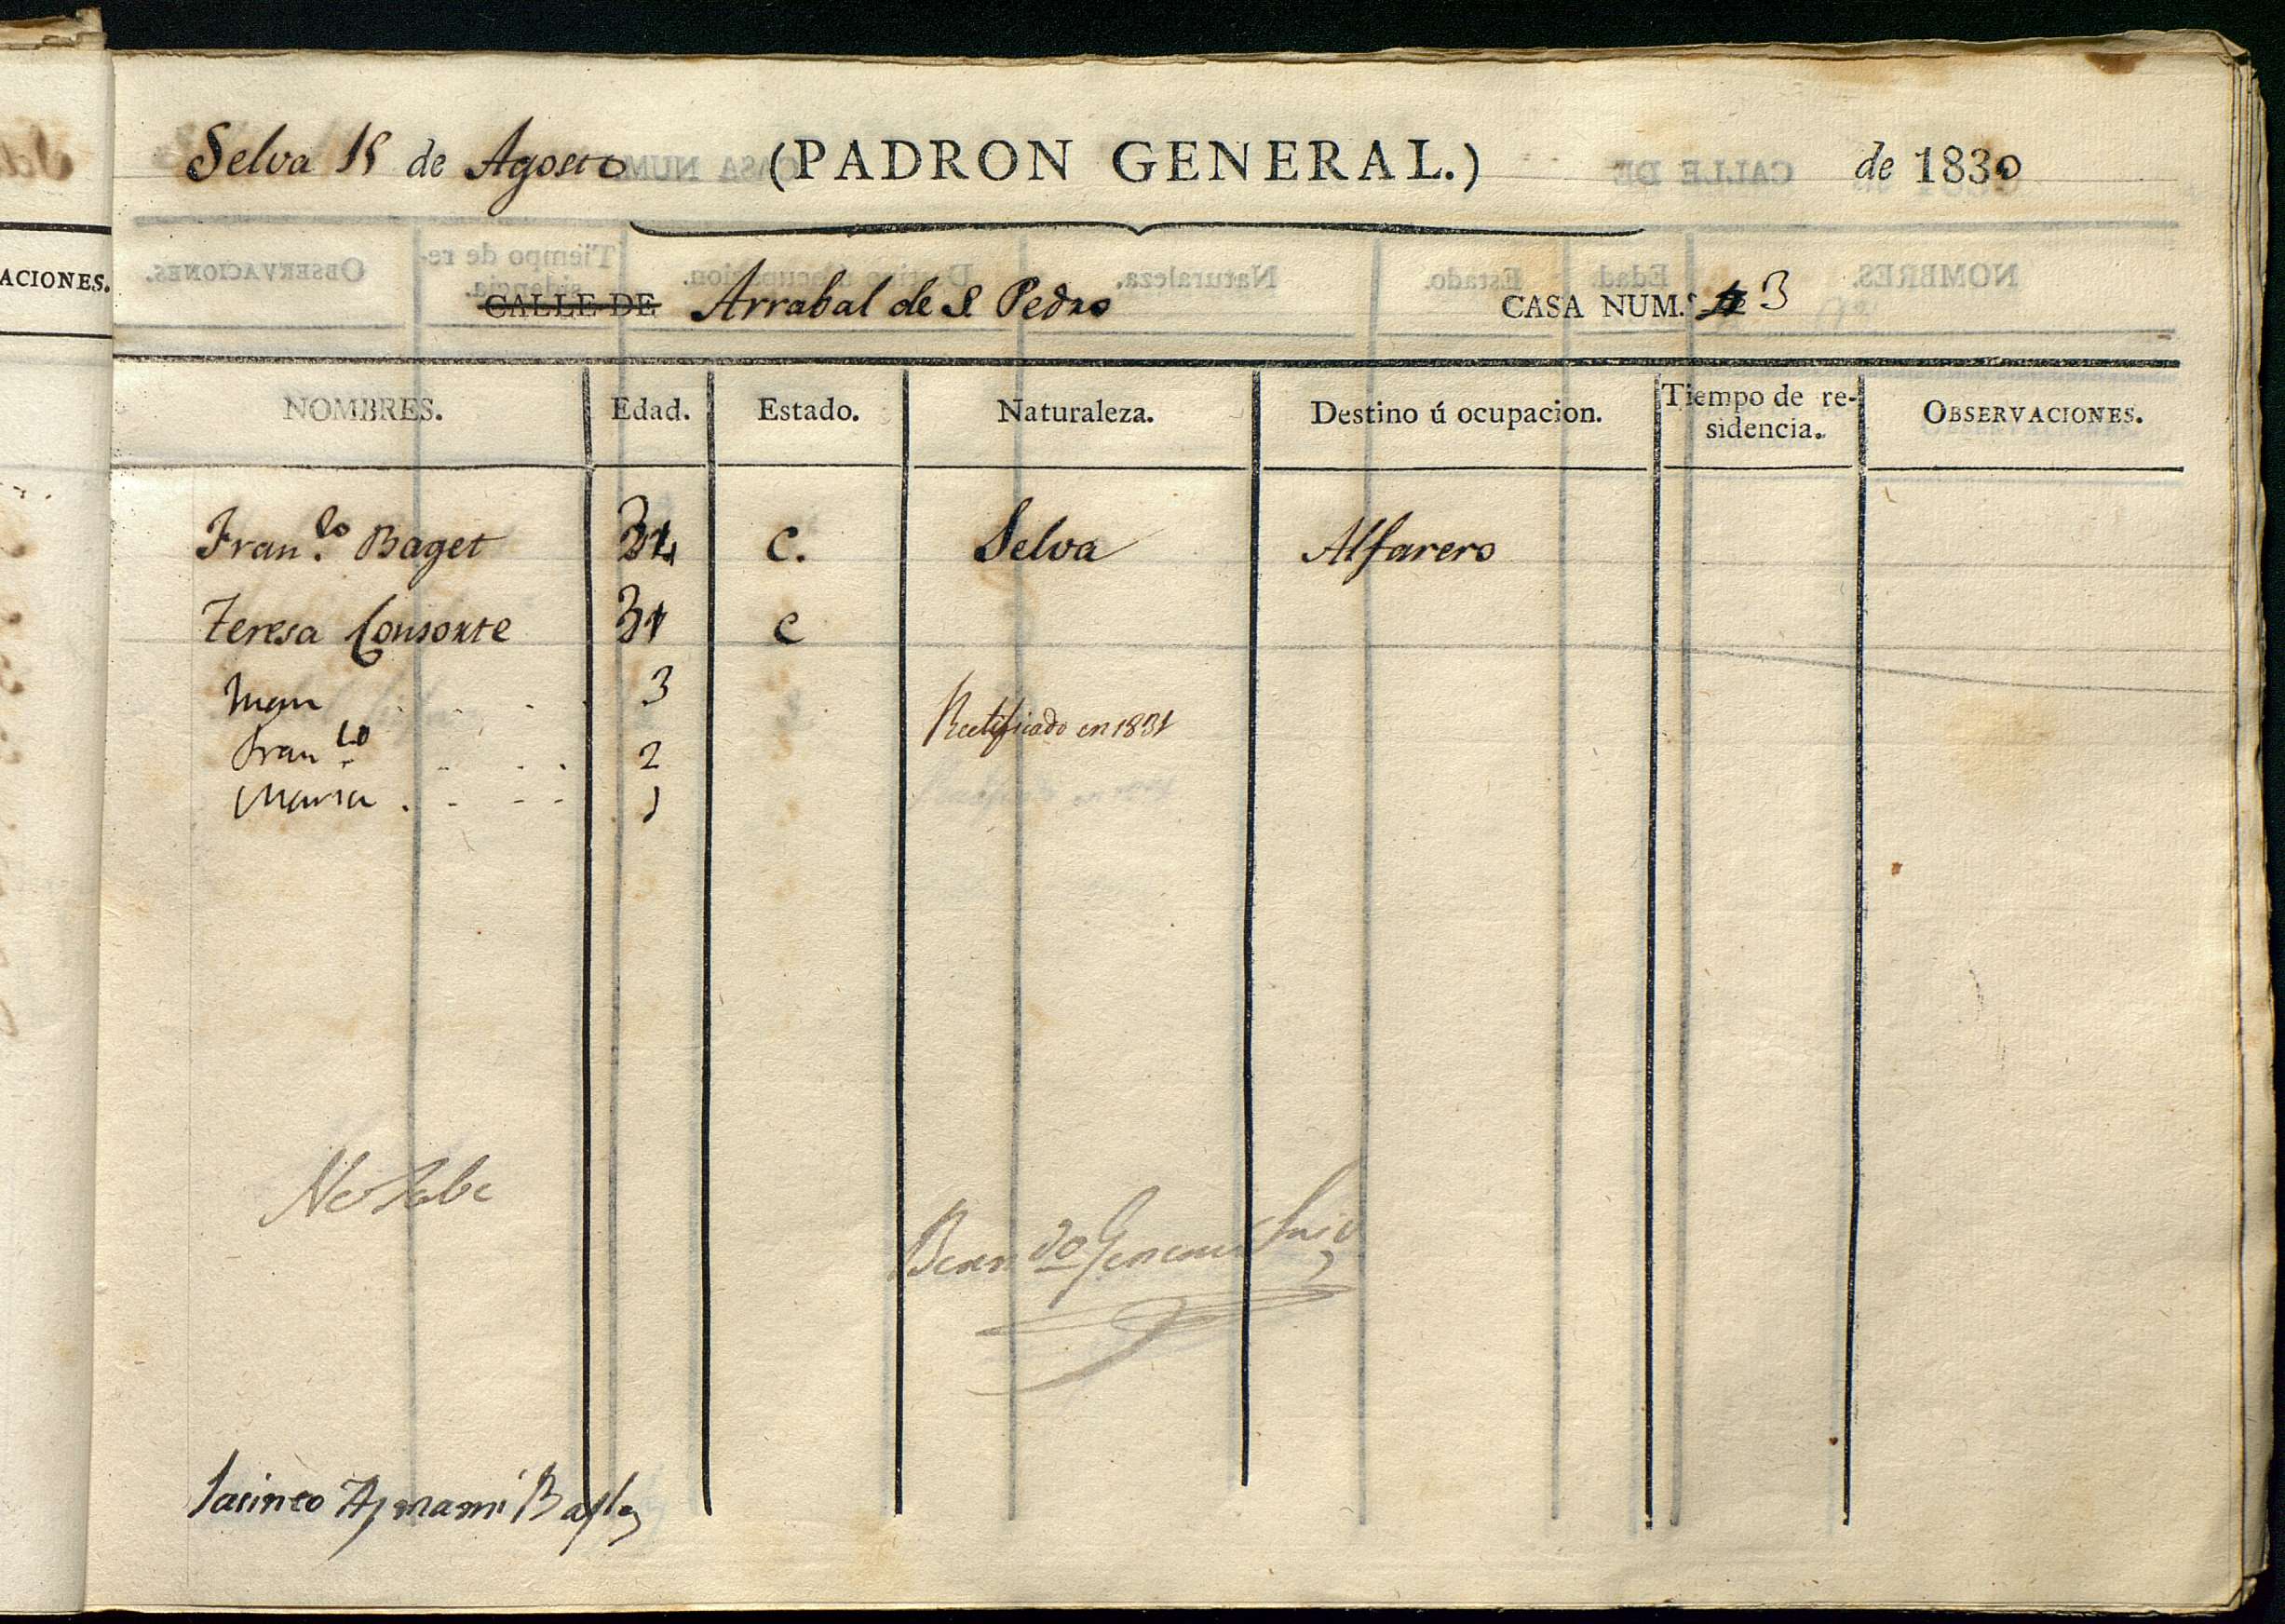 Selva 15 de Agosto (PADRON GENERAL.) de 1830
CALLE DE Arrabal de S Pedro CASA NUM.º 3
NOMBRES. Edad. Estado. Naturaleza. Destino ú ocupacion. Tiempo de re-
sidencia. OBSERVACIONES.
ACIONES.
Fran.co Baget 34 C. Selva Alfarero
Teresa Consorte 31 C
Juan . . . 3
Rectificado en 1831
Fran.co . . . 2
Maria . - - - 1
No Sabe
Jacinto Aymami Bayle